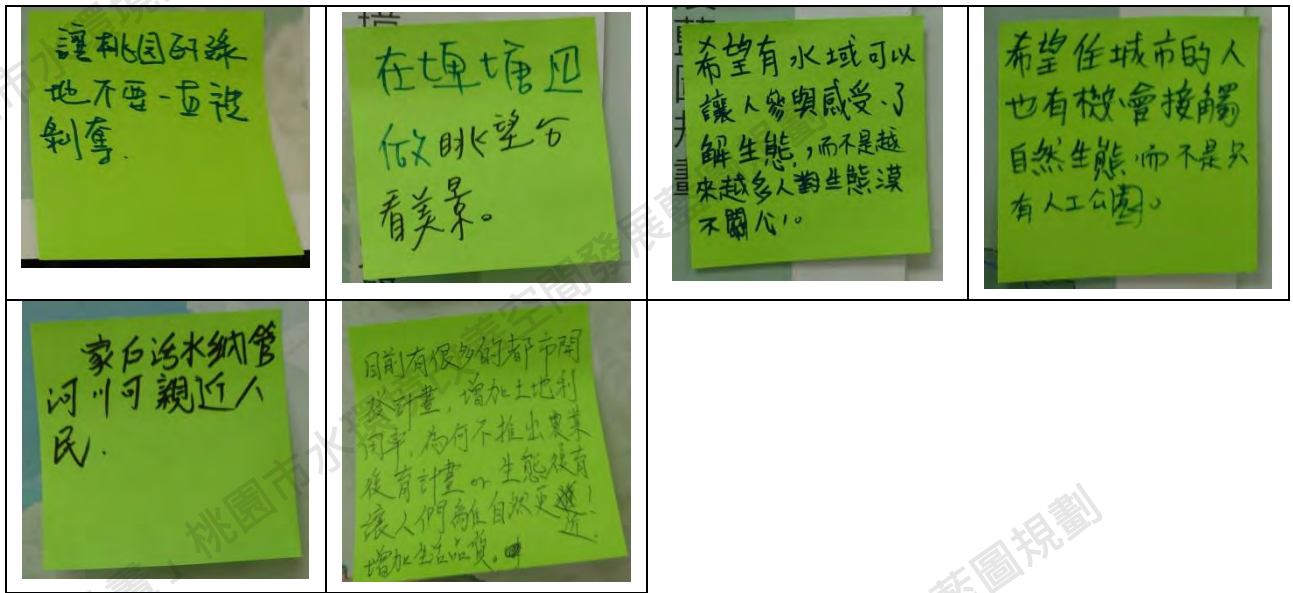 讓桃园的綠
地不要一直被
剝奪.
在埤塘边
做眺望台
看美景。
希望有水域可以
讓人參與感受、了
解生態,,而不是越
來越多人對生態漠
不關心。
希望住城市的人
也有機會接觸
自然生態,而不是只
有人工公園。
家戶污水納管
河川可親近人
民.
目前有很多的都市開
發計畫,增加土地利
用率,為何不推出農業
復育計畫 or 生態復育
讓人們離自然更近!
增加生活品質。
桃園市水環境改善空間發展藍圖規劃
藍圖規劃